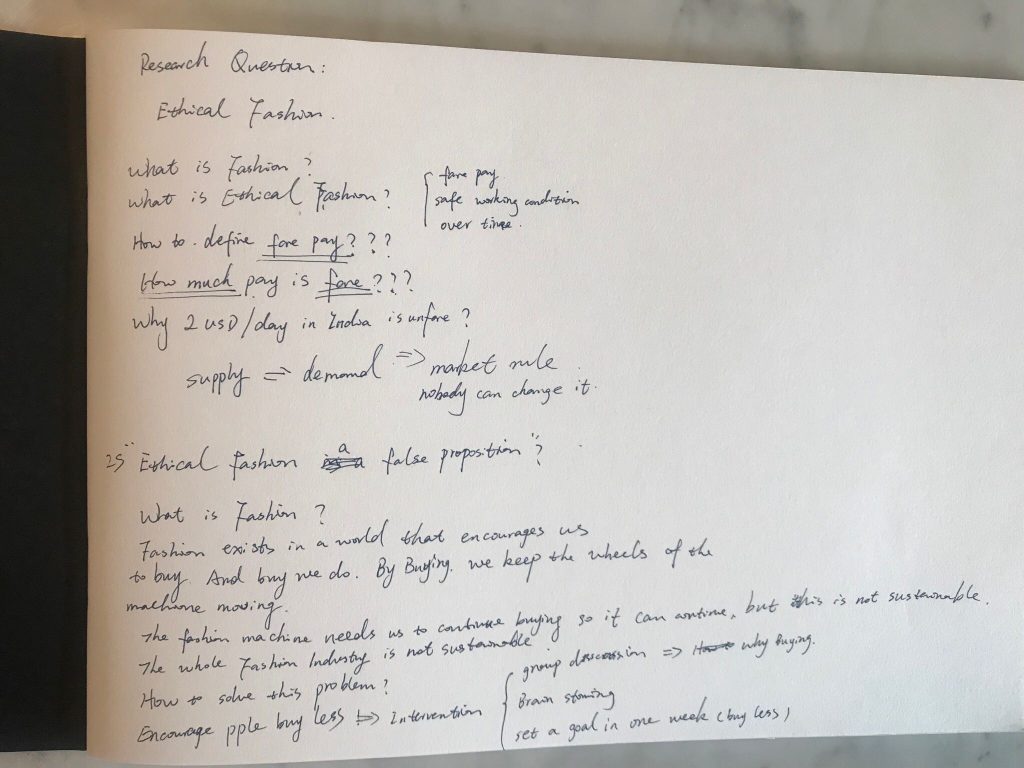 Research Question:
Ethical Fashion.
What is Fashion?
What is Ethical Fashion?
fare pay.
safe working condition
over time.
How to define fare pay???
How much pay is fare???
Why 2 USD/day in India is unfare?
supply => demand => market rule.
nobody can change it.
Is "Ethical fashion a false proposition"?
What is Fashion?
Fashion exists in a world that encourages us
to buy. And buy we do. By Buying. we keep the wheels of the
machine moving.
The fashion machine needs us to continue buying so it can continue, but this is not sustainable.
The whole Fashion Industry is not sustainable
How to solve this problem?
Encourage pple buy less => Intervention
group discussion => How to why Buying.
Brain stoming
set a goal in one week (buy less)